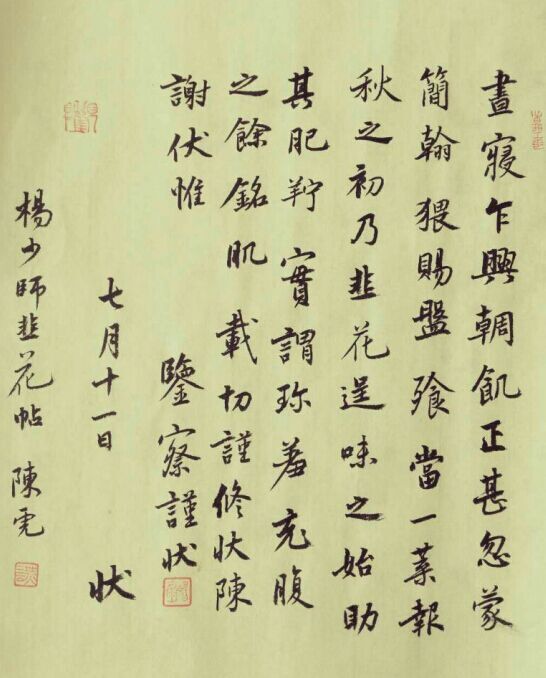 晝寢乍興輖飢正甚忽蒙
簡翰猥賜盤飱當一葉報
秋之初乃韭花逞味之始助
其肥羜實謂珍羞充腹
之餘銘肌載切謹修狀陳
謝伏惟
鑒察謹狀
七月十一日
狀
楊少師韭花帖 陳